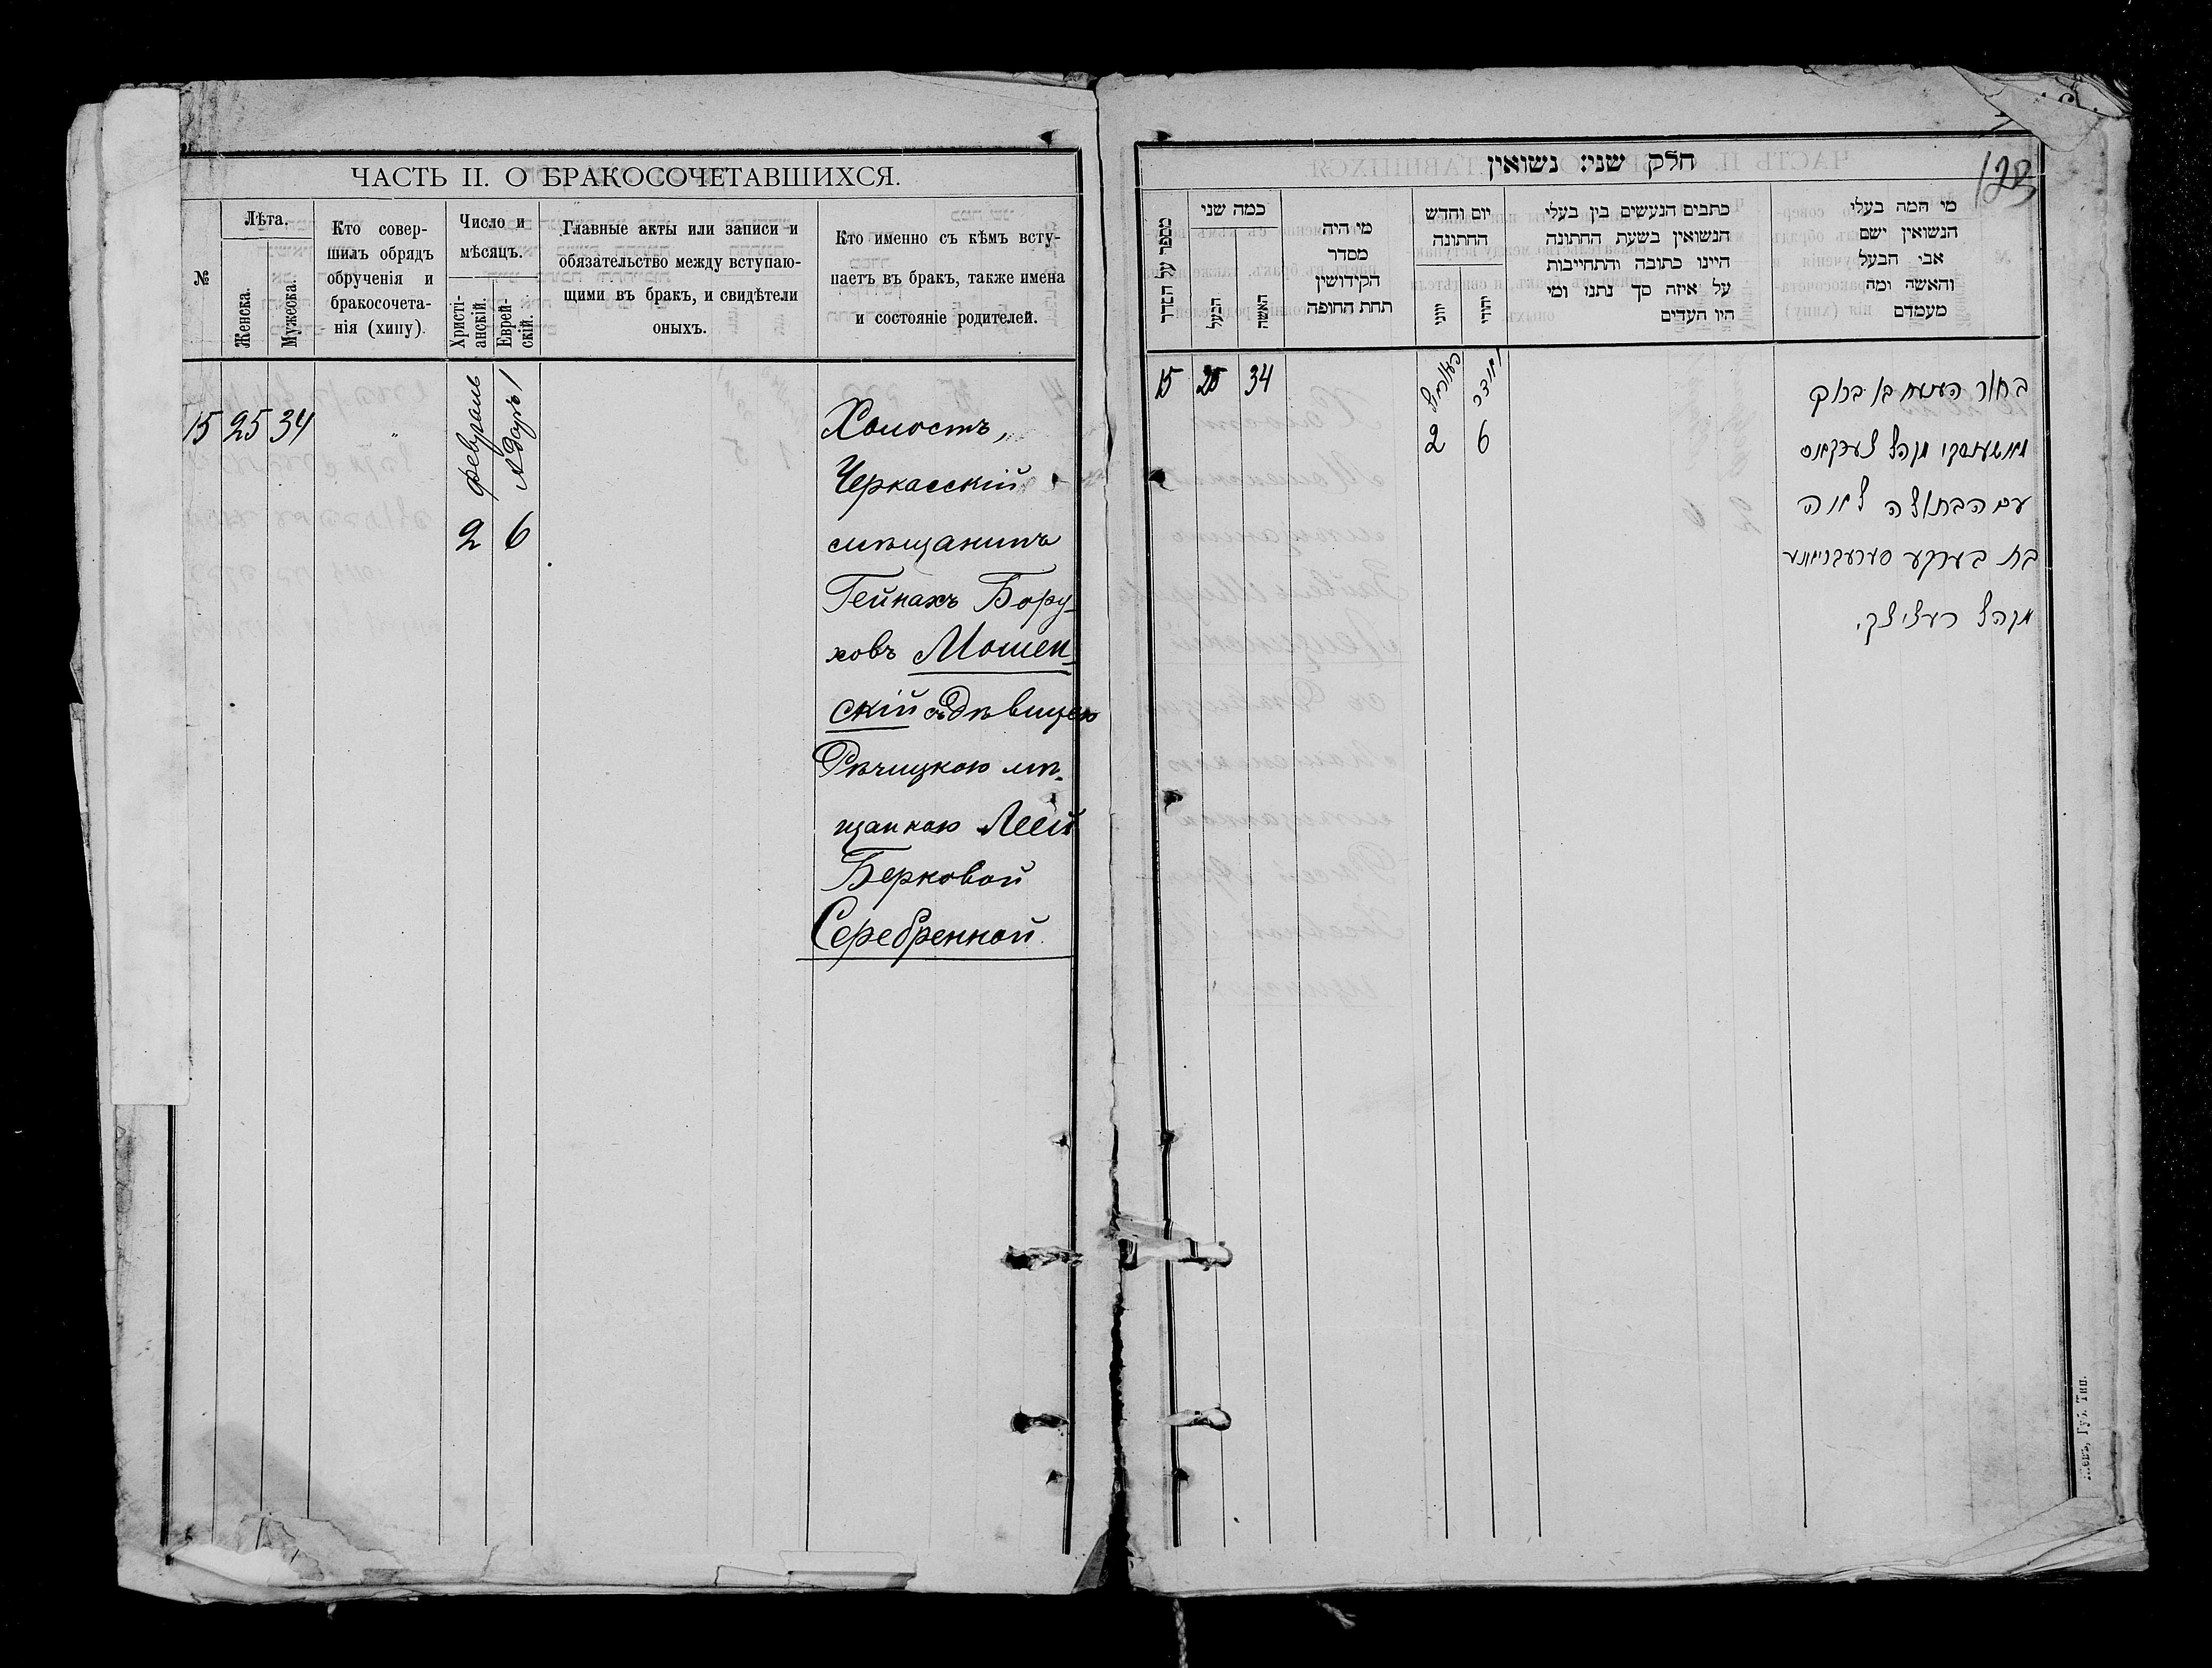 ЧАСТЬ II. О БРАКОСОЧЕТАВШИХСЯ.
№
Лѣта.
Женска.
Мужеска.
Кто совер-
шилъ обрядъ
обрученія и
бракосочета-
нія (хипу).
Число и
мѣсяцъ.
Христі-
анскій.
Еврей-
скій.
Главные акты или записи и
обязательство между вступаю-
щими въ бракъ, и свидѣтели
оныхъ.
Кто именно съ кѣмъ всту-
паетъ въ бракъ, также имена
и состояніе родителей.
15 25 34
февраль
Адаръ 1
2 6
Холостъ,
Черкасскій
мѣщанинъ
Гейнахъ Бору-
ховъ Мошен-
скій съ дѣвицею
Рѣчицкою мѣ-
щанкою Леей
Берковой
Серебренной.
חלק שני: נשואין
123
מספר על הסדר
כמה שני
הבעל
האשה
מי היה
מסדר
הקידושין
תחת החופה
יום וחדש
החתונה
יוני
יהודי
כתבים הנעשים בין בעלי
הנשואין בשעת החתונה
היינו כתובה והתחייבות
על איזה סך נתנו ומי
היו העדים
מי המה בעלי
הנשואין ישם
אבי הבעל
והאשה ומה
מעמדם
15 25 34
2 6
בחור העניח בן ברוך
מאשענסקי מקהל טערקאס
עם הבתולה לאה
בת בערקע סערעבריאנע
מקהל
Губ. Тип.